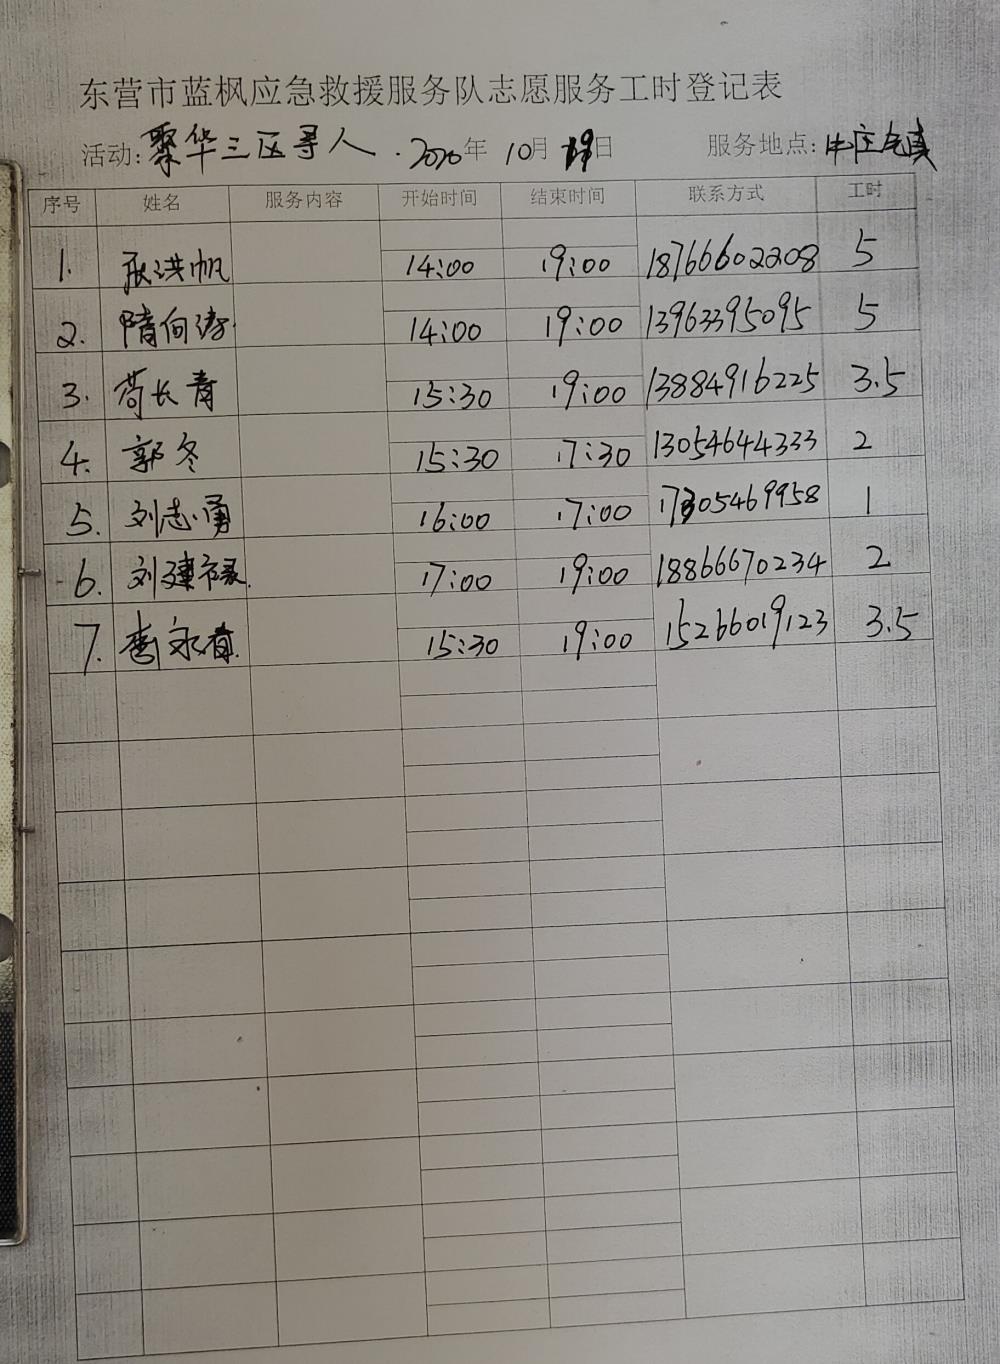 东营市蓝枫应急救援服务队志愿服务工时登记表
活动:聚华三区寻人 2020年10月19日 服务地点:牛庄镇
序号 姓名 服务内容 开始时间 结束时间 联系方式 工时
1. 耿洪帆 14:00 19:00 18766602208 5
2. 隋向涛 14:00 19:00 13963395095 5
3. 苟长青 15:30 19:00 13884916225 3.5
4. 郭冬 15:30 17:30 13054644333 2
5. 刘志勇 16:00 17:00 17305469958 1
6. 刘建禄 17:00 19:00 18866670234 2
7. 李永春 15:30 19:00 15266019123 3.5